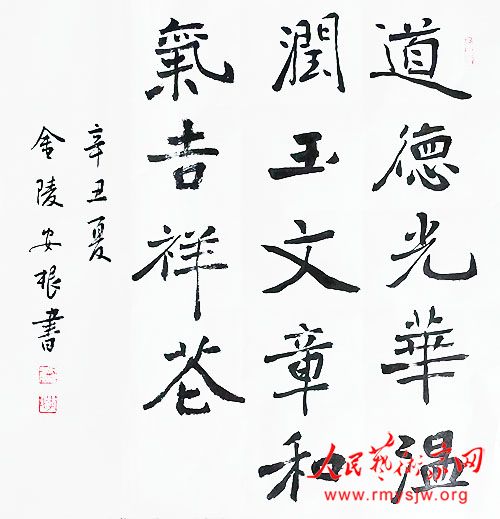 道德光華温
潤玉文章和
氣吉祥花
辛丑夏
金陵安根書
人民藝術家网
www.rmysjw.org